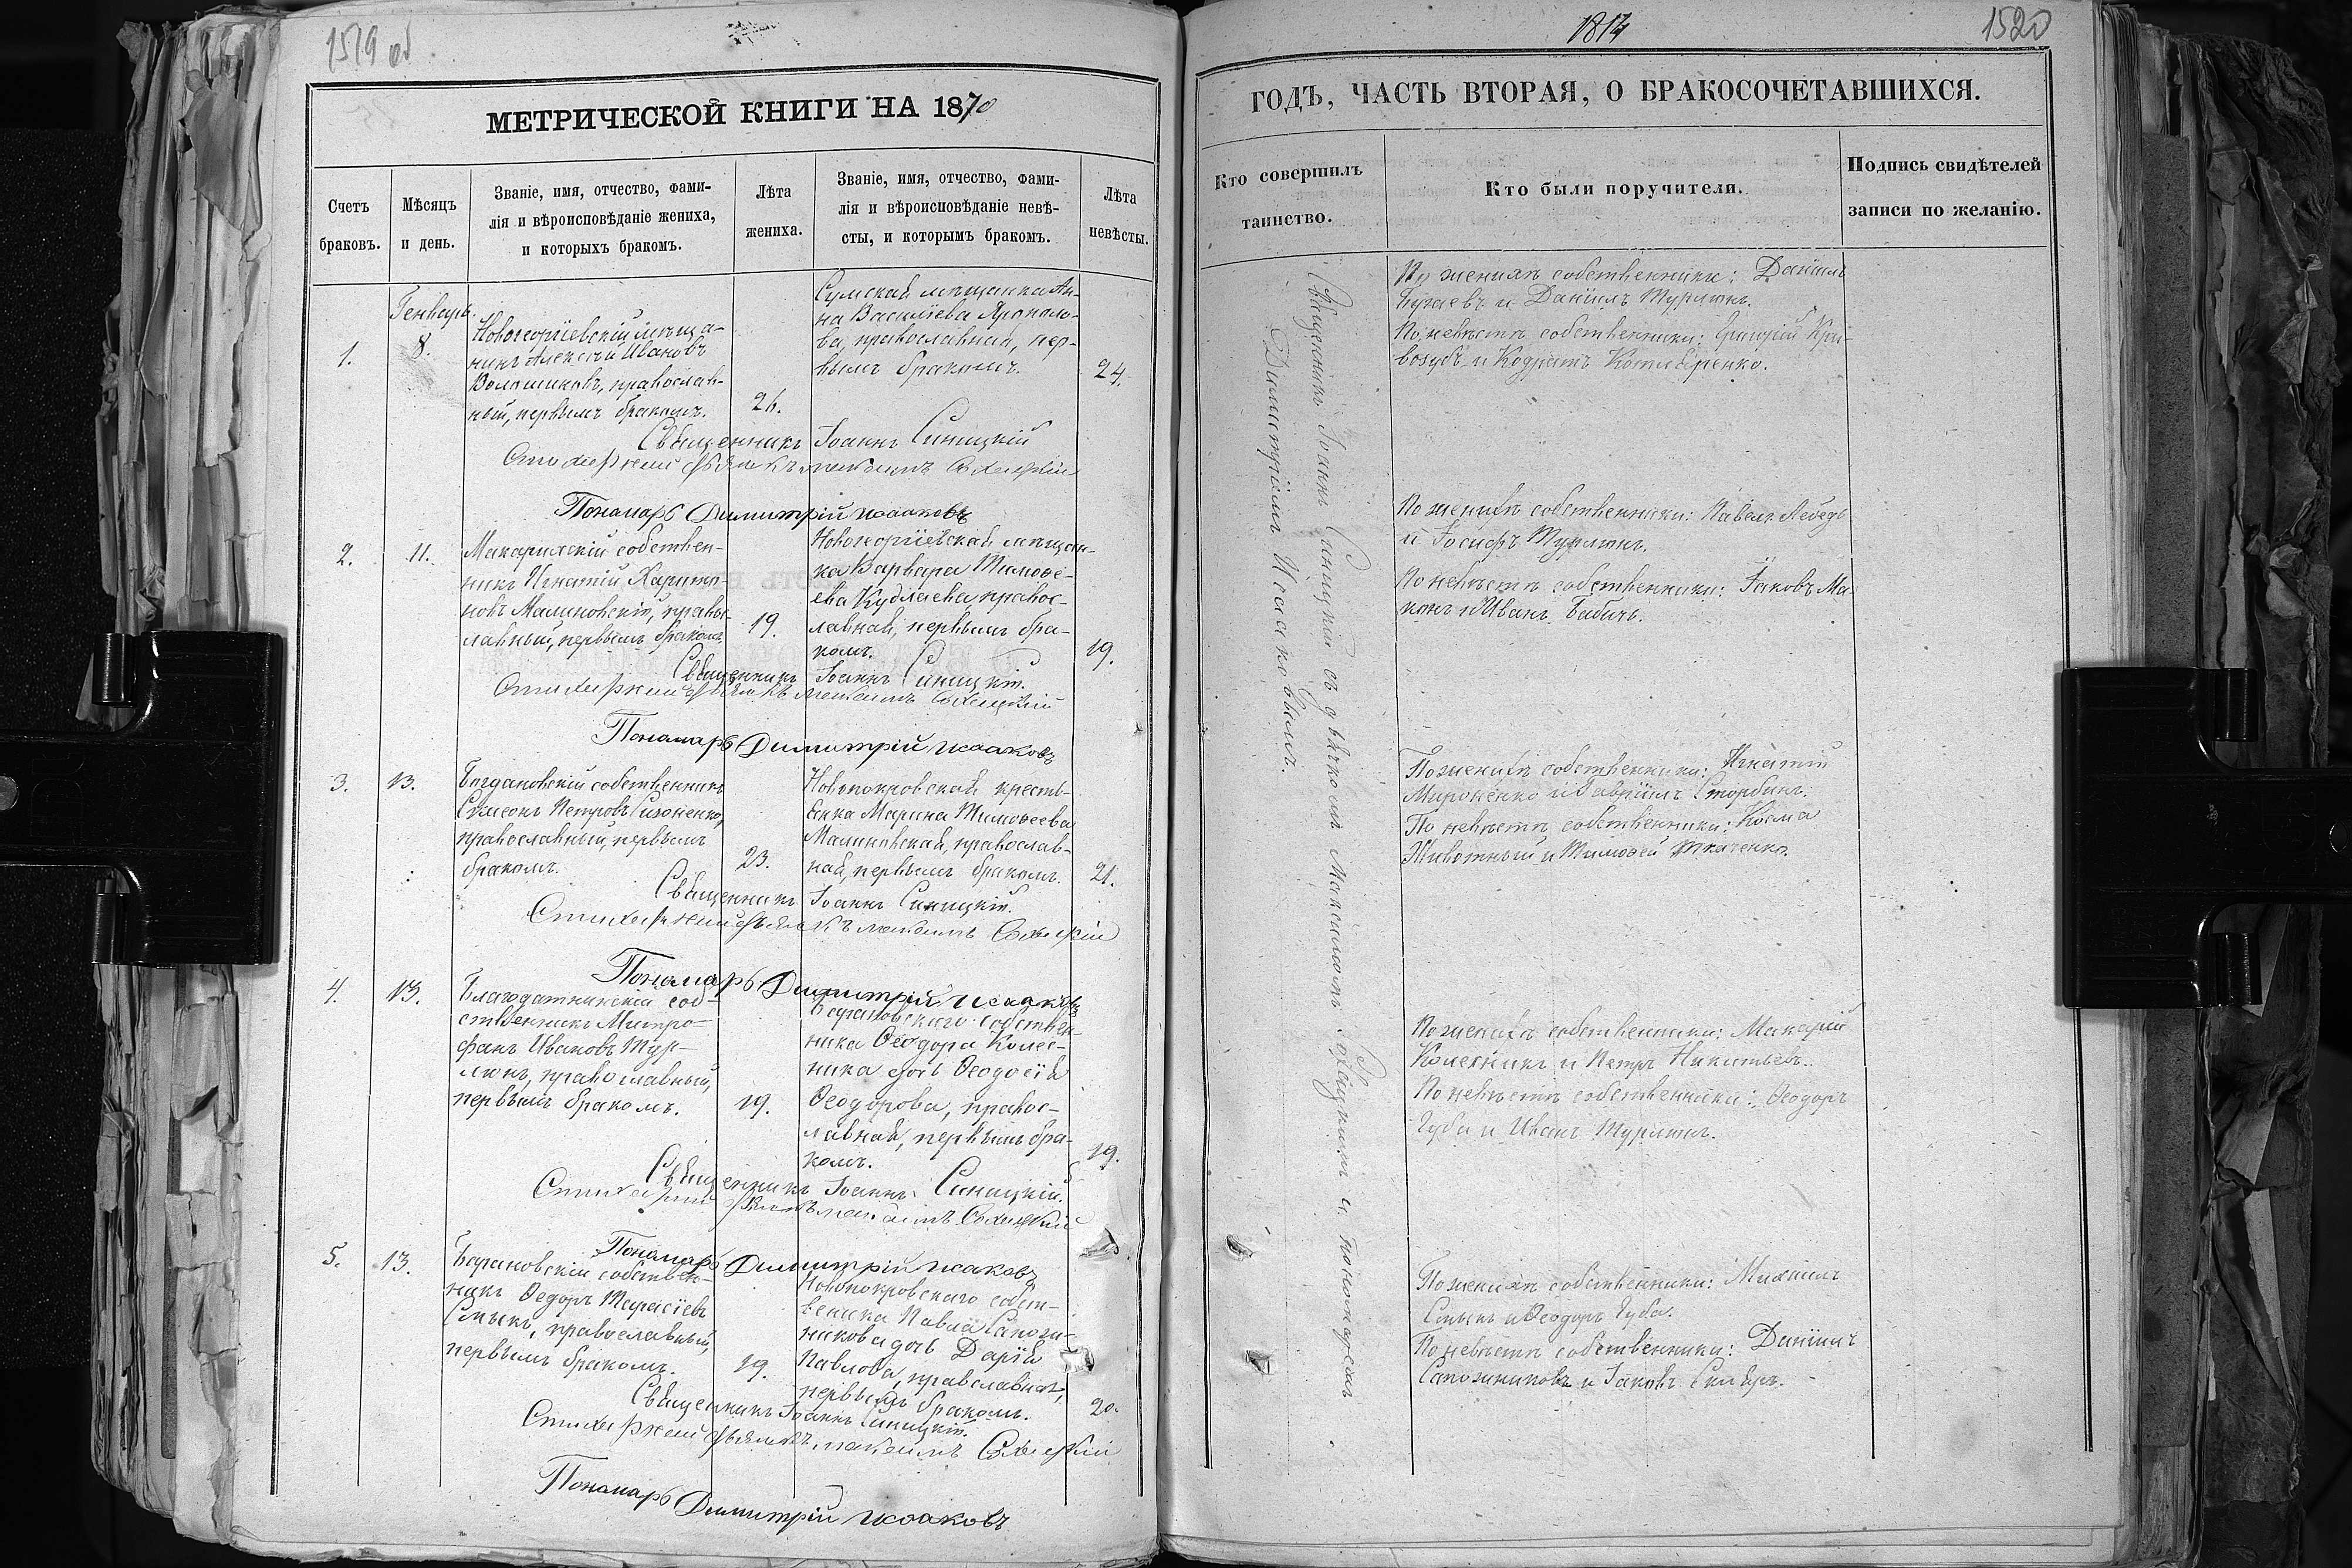 1519 об
МЕТРИЧЕСКОЙ КНИГИ НА 1870
Счетъ
браковъ.
Мѣсяцъ
и день.
Званіе, имя, отчество, фами-
лія и вѣроисповѣданіе жениха,
и которыхъ бракомъ.
Лѣта
жениха.
Званіе, имя, отчество, фами-
лія и вѣроисповѣданіе невѣ-
сты, и которымъ бракомъ.
Лѣта
невѣсты.
1.
Генварь.
8.
Новогеоргіевскій мѣща-
нинъ Алексѣй Ивановъ
Волошиновъ, православ-
ный, первымъ бракомъ.
26.
Сумская мѣщанка Ан-
на Василіева
православная, пер-
вымъ бракомъ.
24.
Священникъ Іоаннъ Синицкій
Стихарный дьячекъ Максимъ
Пономарь Димитрій Исааковъ
2.
11.
Макарихскій собствен-
никъ Игнатій Харито-
новъ Малиновскій, право-
славный, первымъ бракомъ.
19.
Новогеоргіевская мѣщан-
ка Варвара Тимоѳе-
ева Кудлаева, правос-
лавная, первымъ бра-
комъ.
19.
Священникъ Іоаннъ Синицкій.
Стихарный дьячекъ Максимъ
Пономарь Димитрій Исааковъ
3.
13.
Богдановскій собственникъ
Сѵмеонъ Петровъ
православный, первымъ
бракомъ.
23.
Новопокровская кресть-
янка Марина Тимоѳеева
Малиновская, православ-
ная, первымъ бракомъ.
21.
Священникъ Іоаннъ Синицкій.
Стихарный дьячекъ Максимъ
Пономарь Димитрій Исааковъ
4.
13.
Благодатнинскій соб-
ственникъ Митро-
фанъ Ивановъ Тур-
люнъ, православный,
первымъ бракомъ.
19.
Барановскаго собствен-
ника Ѳеодора Колес-
ника дочь Ѳеодосія
Ѳеодорова, правос-
лавная, первымъ бра-
комъ.
19.
Священникъ Іоаннъ Синицкій.
Стихарный дьячекъ Максимъ
Пономарь Димитрій Исааковъ
5.
13.
Барановскій собствен-
никъ Ѳедоръ Тарасіевъ
Смыкъ, православный,
первымъ бракомъ.
19.
Новопокровскаго собст-
веника Павла Сапож-
никова дочь Дарія
Павлова, православная,
первымъ бракомъ.
20.
Священникъ Іоаннъ Синицкій.
Стихарный дьячекъ Максимъ
Пономарь Димитрій Исааковъ
1814
1520
ГОДЪ, ЧАСТЬ ВТОРАЯ, О БРАКОСОЧЕТАВШИХСЯ.
Кто совершилъ
таинство.
Кто были поручители.
Подпись свидѣтелей
записи по желанію.
Священникъ Іоаннъ Синицкій съ дьячкомъ Максимомъ и пономаремъ
Димитріемъ Исааковымъ.
По женихѣ собственники: Даніилъ
Бугаевъ и Даніилъ Турлюнъ.
По невѣстѣ собственники: Григорій Кри-
возубъ и Кодратъ Котляренко.
По женихѣ собственники: Павелъ Лебедь
и Іосифъ Турлюнъ.
По невѣстѣ собственники: Іаковъ Ма-
и Иванъ Бабичъ.
По женихѣ собственники: Игнатій
Мироненко и Гавріилъ
По невѣстѣ собственники: Косма
Животный и Тимоѳей Ткаченко.
По женихѣ собственники: Макарій
Колесникъ и Петръ Никитьевъ.
По невѣстѣ собственники: Ѳеодоръ
Губа и Иванъ Турлюнъ.
По женихѣ собственники: Михаилъ
Смыкъ и Ѳеодоръ Губа.
По невѣстѣ собственники: Даніилъ
Сапожниковъ и Іаковъ